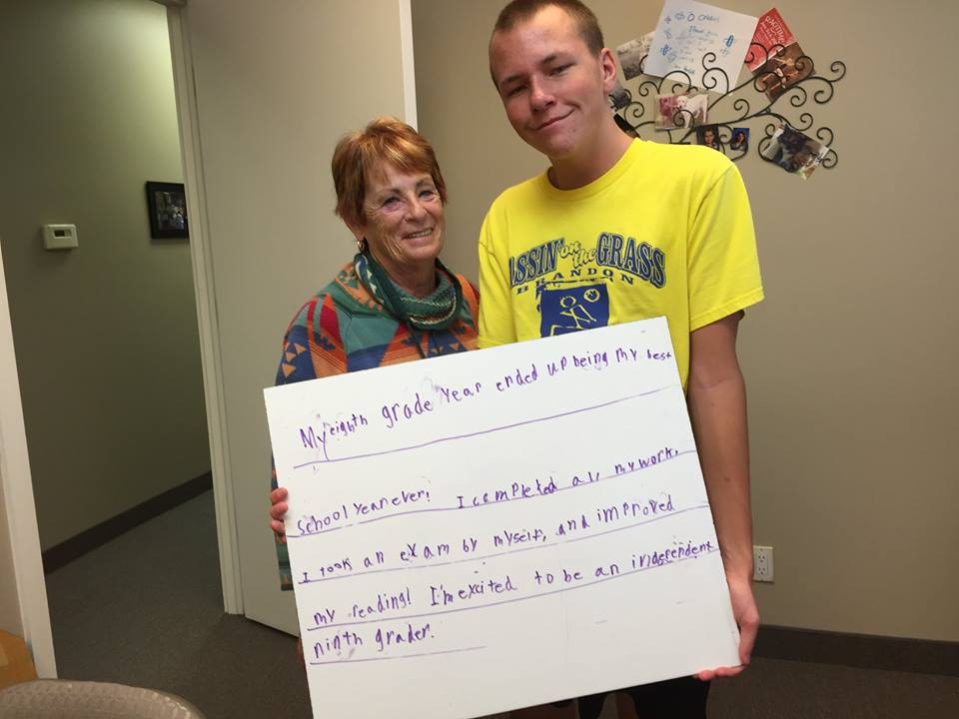 ASSIN' on the GRASS
BRANDON
My eighth grade year ended up being my best
school year ever! I completed all my work,
I took an exam by myself, and improved
my reading! I'm excited to be an independent
ninth grader.